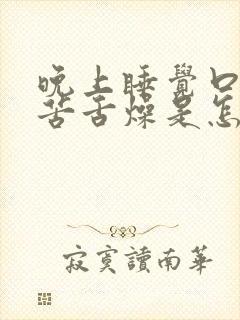 晚上睡覺口
苦舌燥是怎
寂寞讀南華